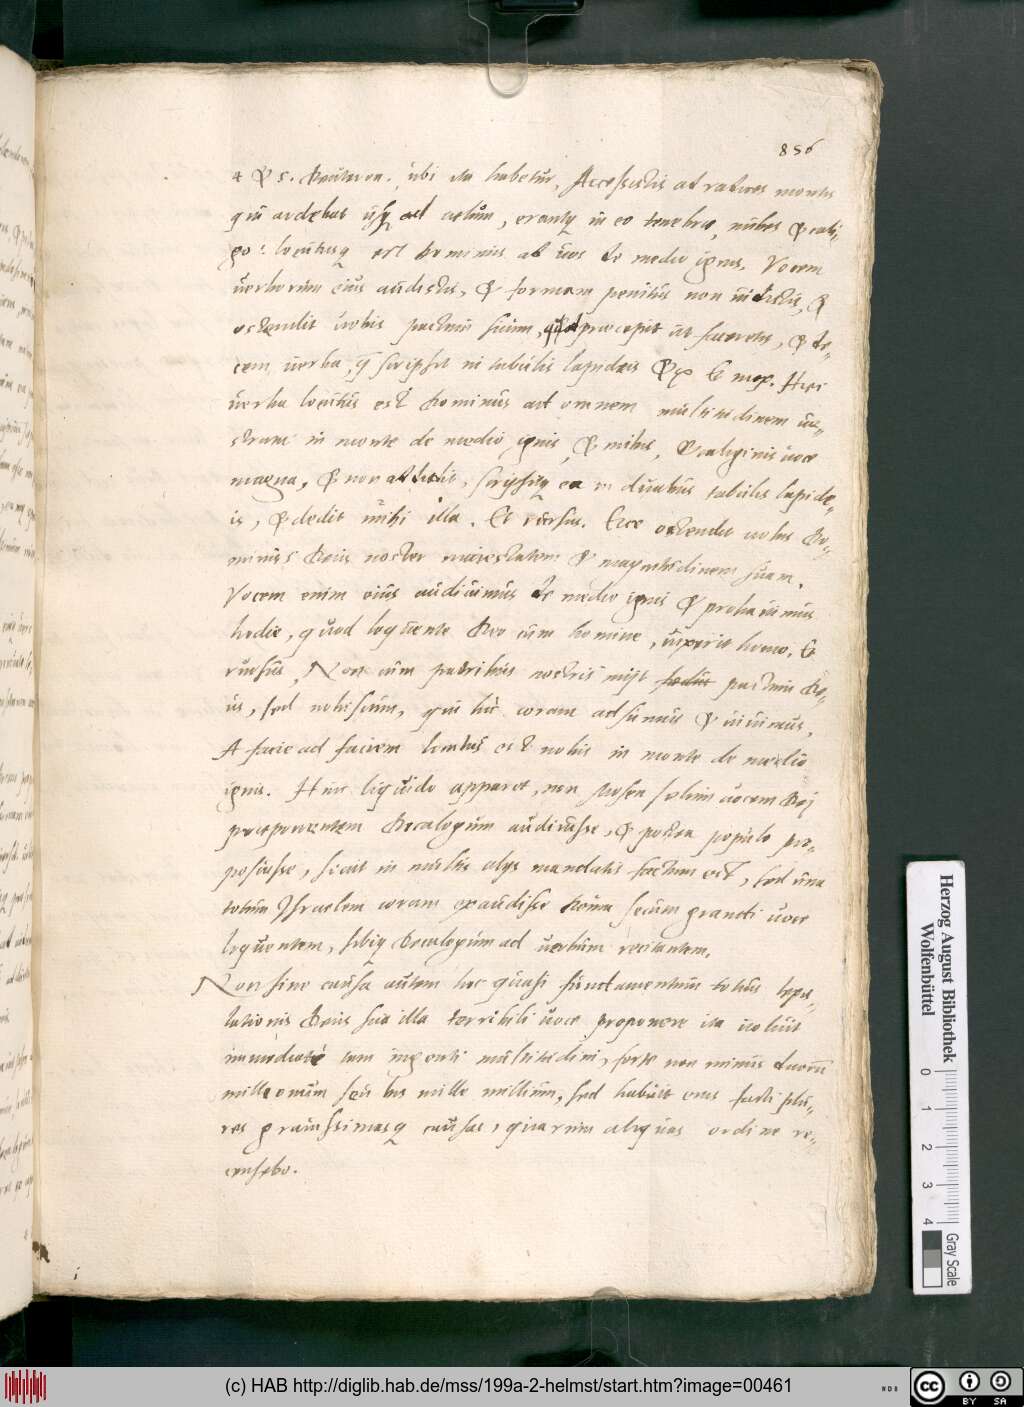 856
4 & 5. Deuteron., ubi ita habetur, Accessistis ad radices montis
qui ardebat usq ad cœlum, erantq in eo tenebræ, nubes & cali-
go: locutusq est Dominus ad uos de medio ignis. Vocem
uerborum eius audistis, & formam penitus non uidistis, &
ostendit uobis pactum suum, quod præcepit ut faceretis, & de-
cem uerba, q scripsit in tabulis lapideis Et mox. Hæc
uerba locutus est Dominus ad omnem multitudinem ue-
stram in monte de medio ignis, & nubis, & caliginis uoce
magna, & non addidit, scripsitq ea in duabus tabulis lapide-
is, & dedit mihi illa. Et rursus. Ecce ostendit nobis Do-
minus Deus noster maiestatem & magnitudinem suam.
Vocem enim eius audiuimus de medio ignis & probauimus
hodie, quod loquente Deo cum homine, uixerit homo. Et
rursus, Non cum patribus nostris inijt pactum De-
us, sed nobiscum, qui hic coram adsumus & uiuimus.
A facie ad faciem locutus est nobis in monte de medio
ignis. Hinc liquido apparet, non Mosen solum uocem Dei
proponentem Decalogum audiuisse, & postea populo pro-
posuisse, sicut in multis alijs mandatis factum est, sed una
totum Israelem coram exaudisse Deum secum grandi uoce
loquentem, sibiq Decalogum ad uerbum recitantem.
Non sine causa autem hoc quasi fundamentum totius legis-
lationis Deus sua illa terribili uoce proponere ita uoluit
immediate tam ingenti multitudini, forte non minus duorum
millionum seu bis mille millium, sed habuit eius facti plu-
res grauissimasq causas, quarum aliquas ordine re-
censebo.
Herzog August Bibliothek
Wolfenbüttel
0 1 2 3 4
Gray Scale
(c) HAB http://diglib.hab.de/mss/199a-2-helmst/start.htm?image=00461
cc BY SA